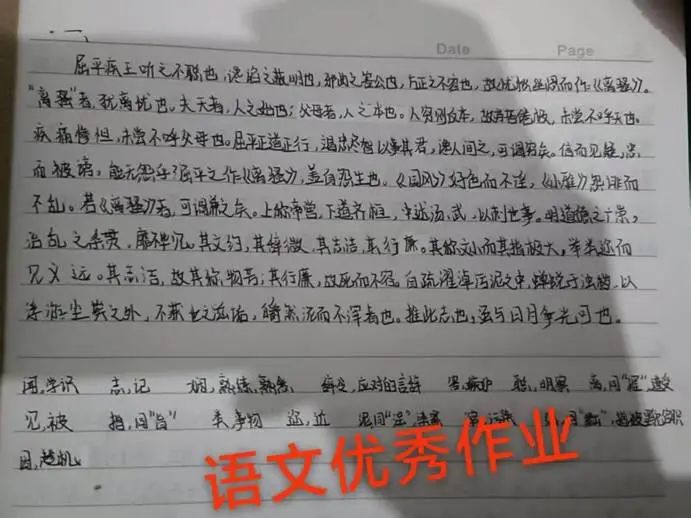 一、
Date Page
屈平疾王听之不聪也,谗谄之蔽明也,邪曲之害公也,方正之不容也,故忧愁幽思而作《离骚》。
"离骚"者,犹离忧也。夫天者,人之始也;父母者,人之本也。人穷则反本,故劳苦倦极,未尝不呼天也。
疾痛惨怛,未尝不呼父母也。屈平正道直行,竭忠尽智以事其君,谗人间之,可谓穷矣。信而见疑,忠
而被谤,能无怨乎?屈平之作《离骚》,盖自怨生也。《国风》好色而不淫,《小雅》怨诽而
不乱。若《离骚》者,可谓兼之矣。上称帝喾,下道齐桓,中述汤、武,以刺世事。明道德之广崇,
治乱之条贯,靡 其文约,其辞微,其志洁,其行廉。其称文小而其指极大,举类迩而
见义远。其志洁,故其称物芳;其行廉,故死而不容。自疏濯淖污泥之中,蝉蜕于浊秽,以
浮游尘埃之外,不获世之滋垢,皭然泥而不滓者也。推此志也,虽与日月争光可也。
闻,学识 志,记 娴,熟练,熟悉 辞令,应对的言辞 害,嫉妒 聪,明察 离,同"罹",遭受
见,被 指,同"旨" 类,事物 迩,近 泥同"涅",染黑
语文优秀作业